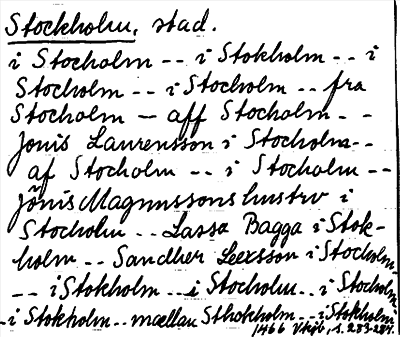 Stockholm, stad.
i Stocholm -- i Stokholm -- i
Stocholm -- i Stocholm -- fra
Stocholm — aff Stocholm --
Jonis Laurensson i Stocholm --
af Stocholm -- i Stocholm --
Jönis Magnussons hustrv i
Stocholm -- Lassa Bagga i Stok-
holm -- Sandher Leexsson i Stocholm
-- i Stokholm -- i Stocholm -- i Stocholm
- i Stokholm -- mællan Sthokholm -- i Stokholm
1466 Vkjb, s. 283-284.